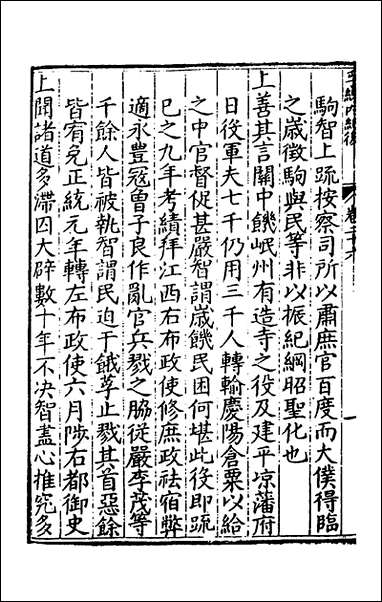 駒智上疏按察司所以肅庶官百度而大僕得臨
之歳徵駒與民等非以振紀綱昭聖化也
上善其言關中饑岷州有造寺之役及建平凉藩府
日役軍夫七千仍用三千人轉輸慶陽倉粟以給
之中官督促甚嚴智謂歳饑民困何堪此役即疏
已之九年考績拜江西右布政使修庶政祛宿弊
適永豐冦曽子良作亂官兵戮之脇從嚴季茂等
千餘人皆被執智謂民迫于餓莩止戮其首惡餘
皆宥免正統元年轉左布政使六月陟右都御史
上聞諸道多滯四大辟數十年不决智盡心推究多